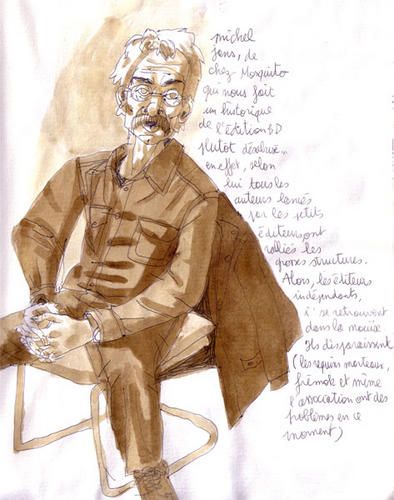 michel
Jans, de
chez Mosquito
qui nous fait
un historique
de l'édition BD
plutôt désabusé..
en effet, selon
lui tous les
auteurs lancés
par les petits
éditeurs ont
ralliés les
grosses structures.
Alors, les éditeurs
indépendants,
i' se retrouvent
dans la mouise.
Ils disparaissent
(les requins marteaux,
frémok et même
l'association ont des
problèmes en ce
moment)